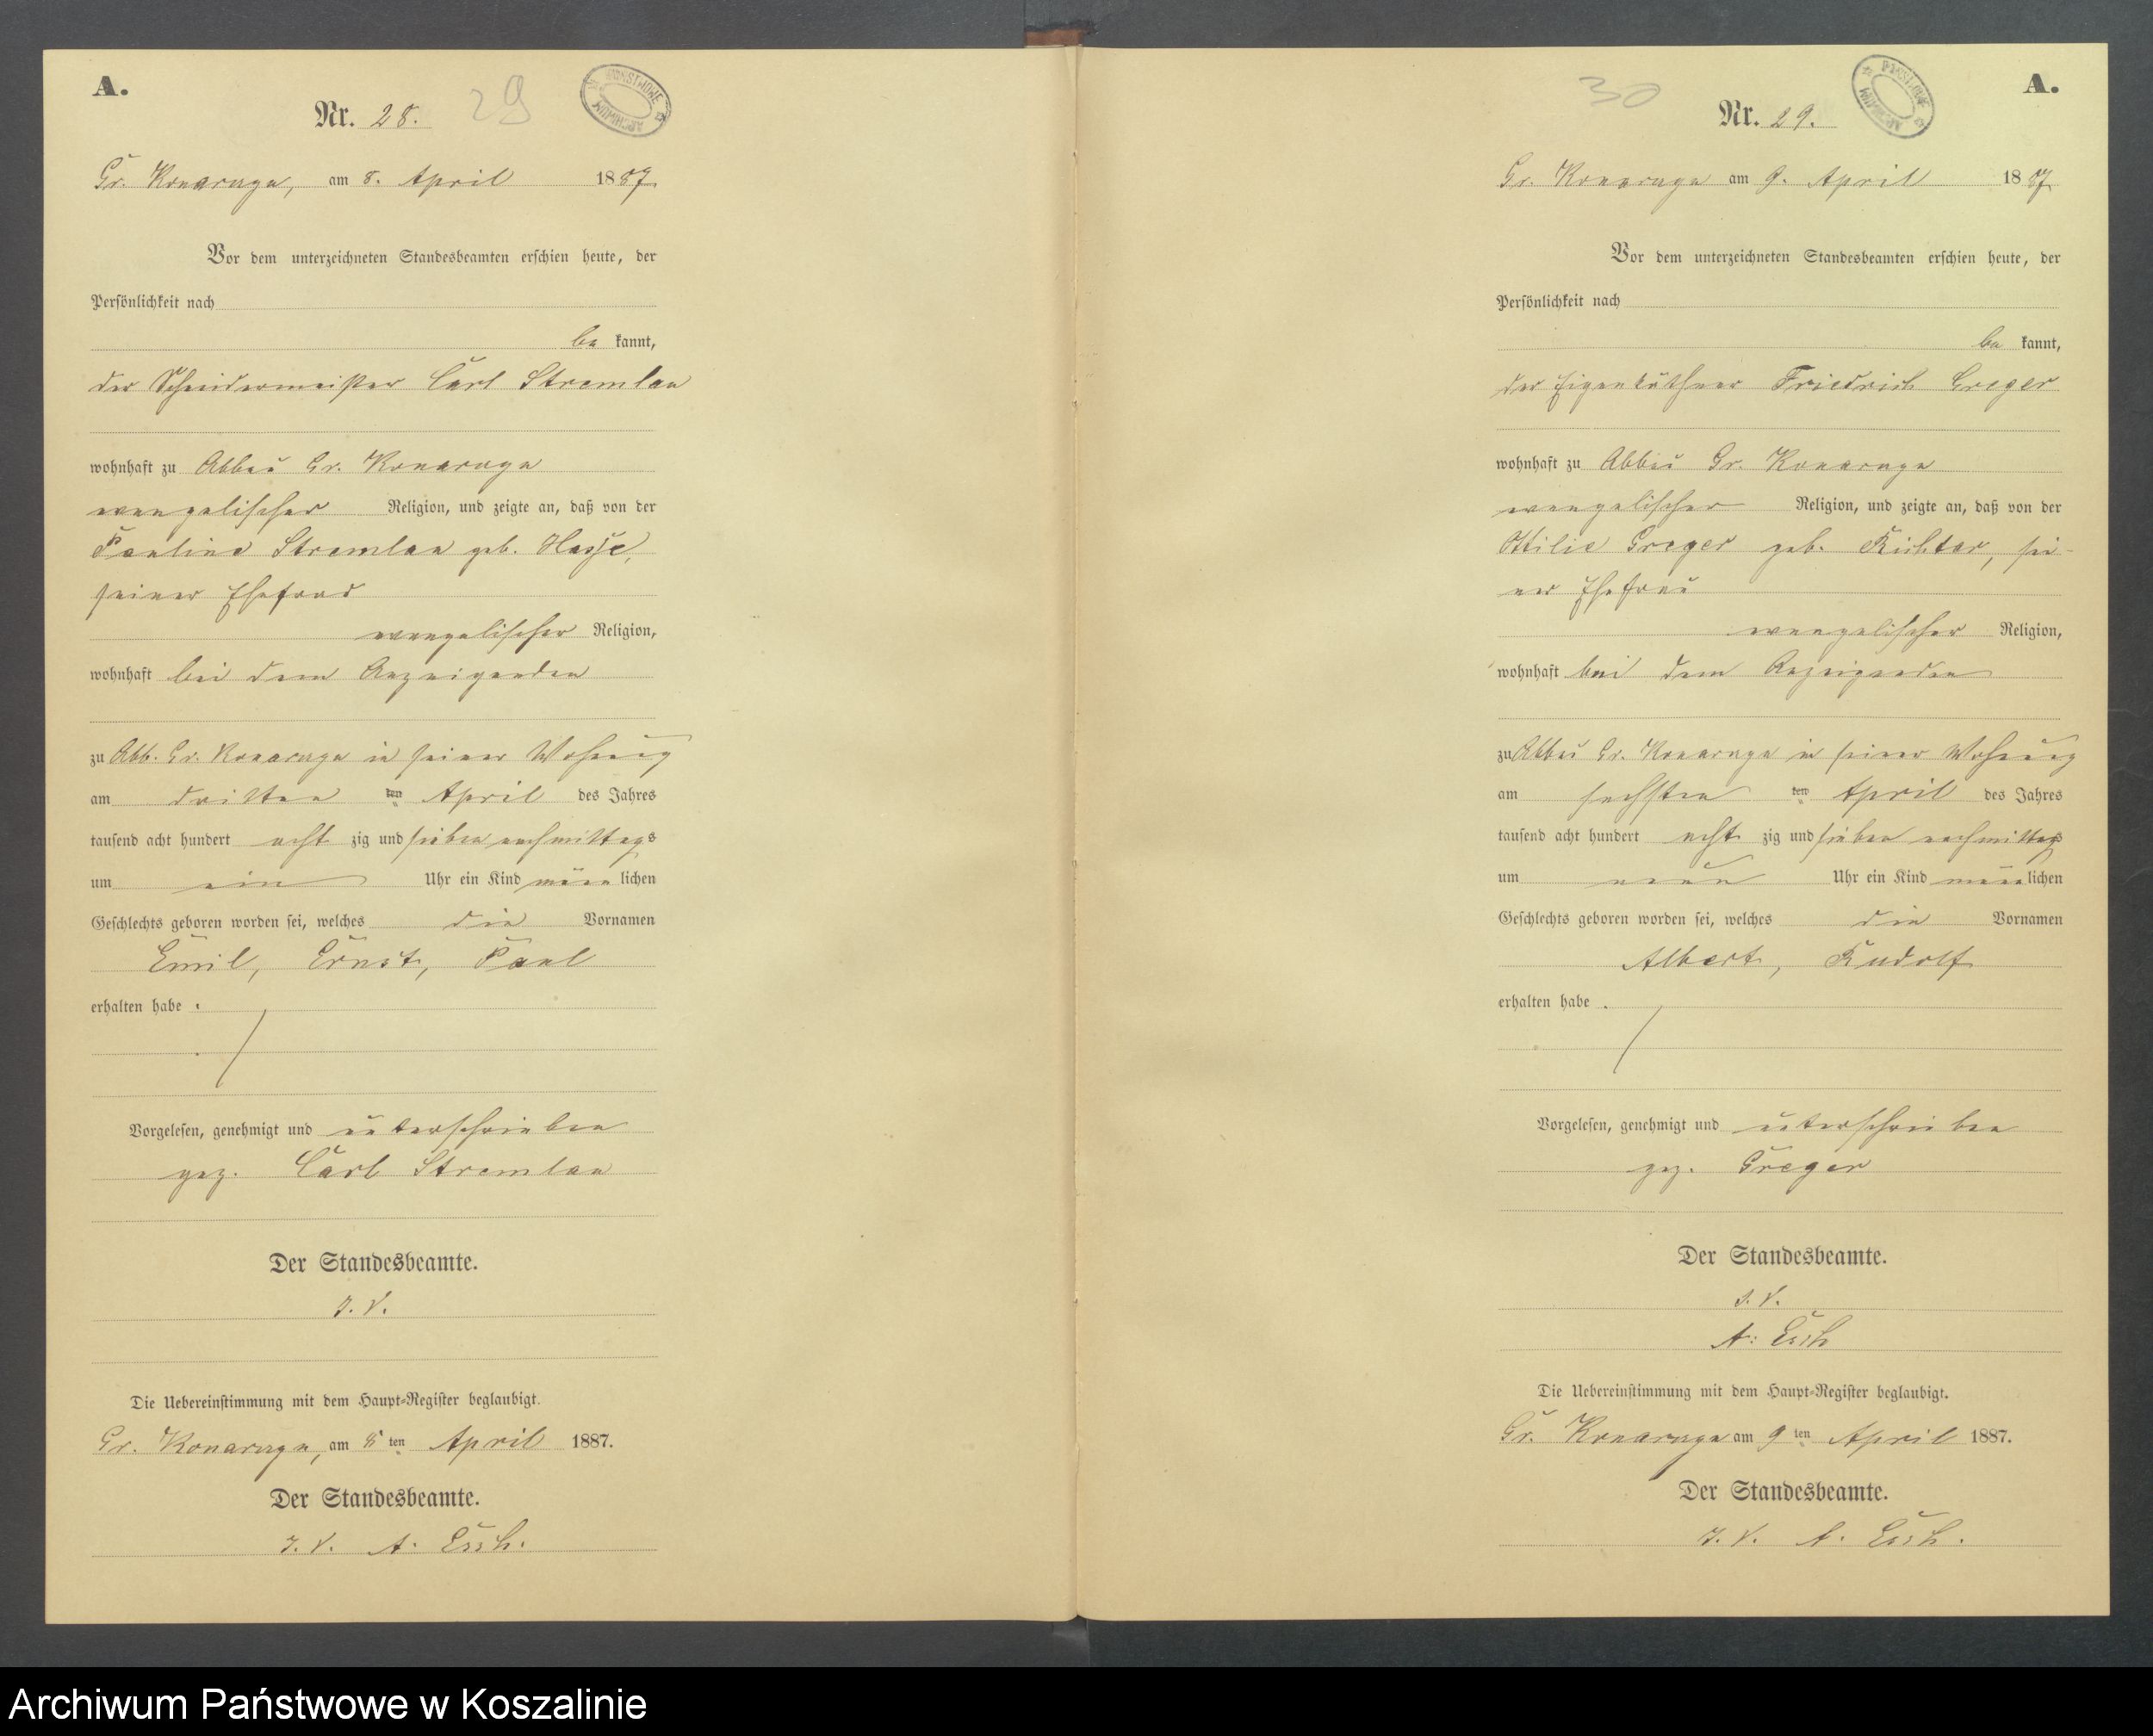 A.
Nr. 28.
29
PAŃSTWOWE ARCHIWUM
Gr. Konarczyn, am 8. April 1887
Vor dem unterzeichneten Standesbeamten erschien heute, der
Persönlichkeit nach
be kannt,
der Schneidermeister Carl Stremlau
wohnhaft zu Abbau Gr. Konarczyn
evangelischer Religion, und zeigte an, daß von der
Pauline Stremlau geb. Hasse,
seiner Ehefrau
evangelischer Religion,
wohnhaft bei dem Anzeigenden
zu Abb. Gr. Konarczyn in seiner Wohnung
am dritten ten April des Jahres
tausend acht hundert acht zig und sieben nachmittags
um ein Uhr ein Kind männ lichen
Geschlechts geboren worden sei, welches die Vornamen
Emil, Ernst, Paul
erhalten habe.
Vorgelesen, genehmigt und unterschrieben
gez. Carl Stremlau
Der Standesbeamte.
I. V.
Die Uebereinstimmung mit dem Haupt-Register beglaubigt.
Gr. Konarczyn, am 8 ten April 1887.
Der Standesbeamte.
I. V. A. Esch.
30
A.
Nr. 29.
PAŃSTWOWE ARCHIWUM
Gr. Konarczyn am 9. April 1887
Vor dem unterzeichneten Standesbeamten erschien heute, der
Persönlichkeit nach
be kannt,
der Eigenkäthner Friedrich Greger
wohnhaft zu Abbau Gr. Konarczyn
evangelischer Religion, und zeigte an, daß von der
Ottilie Greger geb. Richter, sei-
ner Ehefrau
evangelischer Religion,
wohnhaft bei dem Anzeigenden
zu Abbau Gr. Konarczyn in seiner Wohnung
am sechsten ten April des Jahres
tausend acht hundert acht zig und sieben nachmittags
um neun Uhr ein Kind männ lichen
Geschlechts geboren worden sei, welches die Vornamen
Albert, Rudolf
erhalten habe.
Vorgelesen, genehmigt und unterschrieben
gez. Greger
Der Standesbeamte.
I. V.
A. Esch
Die Uebereinstimmung mit dem Haupt-Register beglaubigt.
Gr. Konarczyn am 9 ten April 1887.
Der Standesbeamte.
I. V. A. Esch.
Archiwum Państwowe w Koszalinie